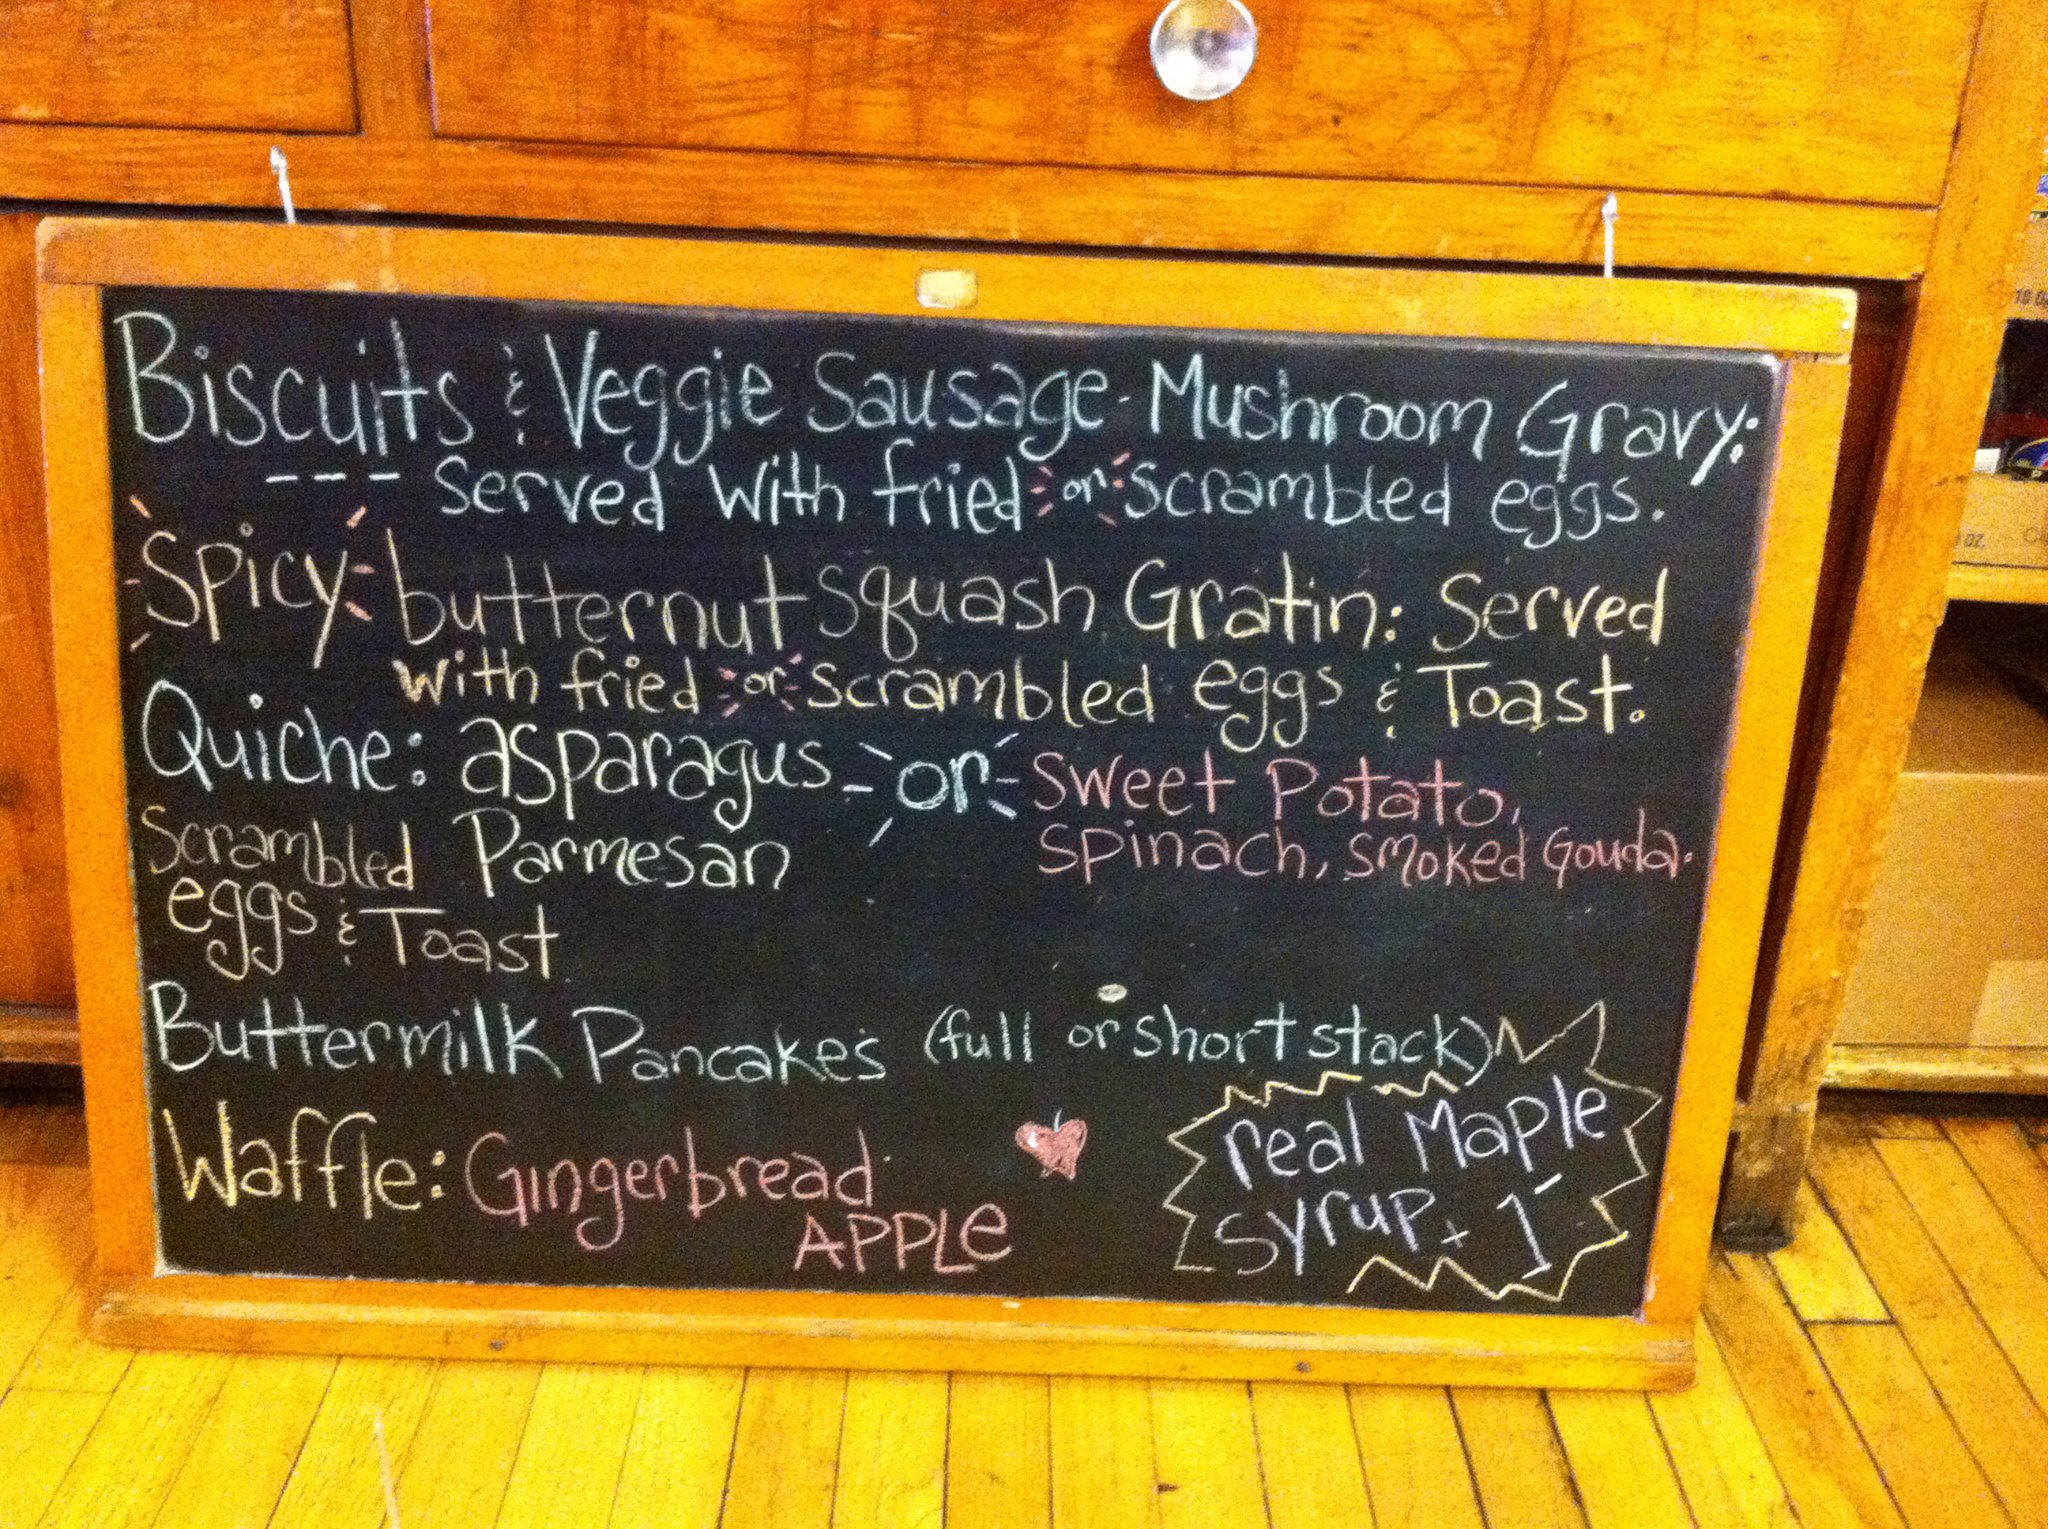 Biscuits & Veggie Sausage-Mushroom Gravy:
--- Served with fried or scrambled eggs.
Spicy butternut squash Gratin: Served
with fried or scrambled eggs & Toast.
Quiche: asparagus or sweet Potato,
Scrambled Parmesan spinach, smoked Gouda.
eggs & Toast
Buttermilk Pancakes (full or short stack)
Waffle: Gingerbread
APPLe
real Maple
syrup + 1-
10 O
OZ.